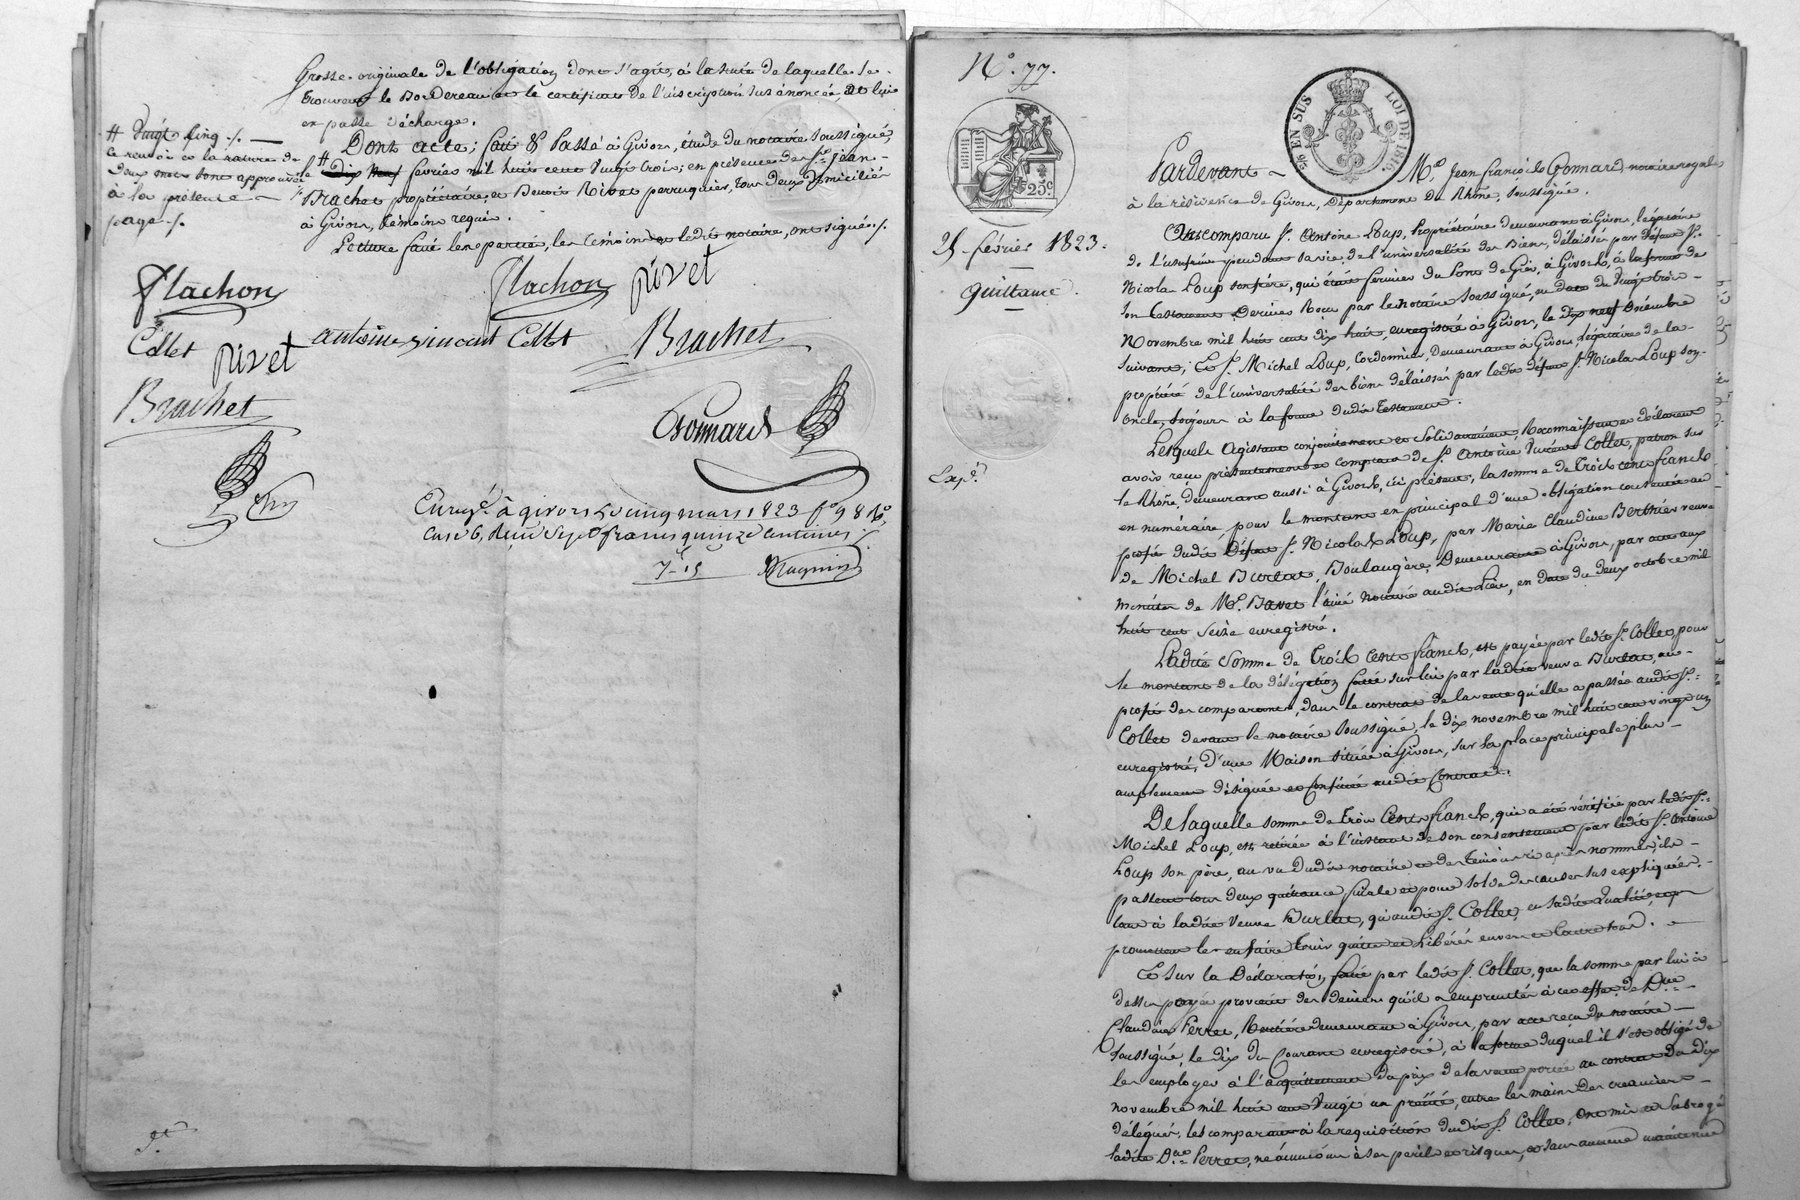 Grosse originale de l'obligation dont s'agit, à la suite de laquelle se
trouvent le Bordereau et le certificat de l'inscription sus énoncée, et lui
en passe décharge.
Dont acte; fait & Passé à Givors, étude du notaire soussigné,
le # dix neuf février mil huit cent vingt trois; en présence de Sr. jean
Brachet propriétaire, et Benoit Rivet perruquier, tous deux domiciliés
à Givors, témoins requis.
Lecture faite les parties, les témoins et ledit notaire, ont signés ./.
# vingt cinq ./.
le renvoi et la rature de
deux mots sont approuvés
à la présente
page ./.
flachon
flachon
rivet
Collet
antoine vincent Collet
Brachet
rivet
Brachet
Gonnard
Enregé. à givors le cinq mars 1823 fo 98 Vo,
case 6, Reçu sept francs quinze centimes ./.
7-15
Magnin
No. 77.
25c
26 EN SUS LOI DE 1816
25 février 1823.
quittance.
Expé.
Pardevant Me. Jean françois Gonnard, notaire royal
à la résidence de Givors, Département du Rhône, soussigné.
Ont comparu Sr. Antoine Loup, Propriétaire demeurant à Givors, légataire
de l'usufruit pendant sa vie, de l'universalité des Biens, délaissés par défunt Sr.
Nicolas Loup son frère, qui était fermier du Pont de Gier, à Givors, à la forme de
son testament Dernier Reçu par le notaire soussigné, en date du vingt trois
Novembre mil huit cent dix huit, enregistré à Givors, le dix neuf Décembre
suivant; Et Sr. Michel Loup, Cordonnier, Demeurant à Givors, légataire de la
propriété de l'universalité des biens délaissés par ledit défunt Sr. Nicolas Loup son
oncle, toujours à la forme dudit testament.
Lesquels Agissant conjointement et solidairement Reconnaissent et déclarent
avoir reçu présentement et comptant de Sr. Antoine Vincent Collet, patron sur
le Rhône, demeurant aussi à Givors, ici présent, la somme de trois cents francs
en numéraire pour le montant en principal d'une obligation consentie au
profit dudit Défunt Sr. Nicolas Loup, par Marie Claudine Berthier veuve
de Michel Burlat, Boulangère, Demeurant à Givors, par acte aux
minutes de Me. Bavet l'ainé notaire audit Lieu, en date du deux octobre mil
huit cent seize enregistré.
Ladite somme de trois cents francs, est payée par ledit Sr. Collet, pour
le montant de la délégation faite sur lui par ladite veuve Burlat, au
profit des comparants, dans le contrat de la vente qu'elle a passée audit Sr.
Collet devant le notaire soussigné, le dix novembre mil huit cent vingt un
enregistré, d'une Maison située à Givors, sur la place principale plus
amplement désignée et Confinée audit Contrat.
De laquelle somme de trois Cents francs, qui a été vérifiée par ledit Sr.
Michel Loup, et retirée à l'instant de son consentement par ledit Sr. Antoine
Loup son père, au vu dudit notaire et des témoins ci après nommés, ils
passent tous deux quittance finale et pour solde des causes sus expliquées,
tant à ladite veuve Burlat, qu'audit Sr. Collet, en sadite qualité, et
promettent les en faire tenir quittes et Libérés envers et contre tous.
Et sur la Déclaration, faite par ledit Sr. Collet, que la somme par lui ci
dessus payée provient des deniers qu'il a empruntés à cet effet de Dlle
Claudine Perret, Rentière demeurant à Givors, par acte reçu du notaire
soussigné, le dix du Courant enregistré, à la forme duquel il s'est obligé de
les employer à l'acquittement du prix de la vente portée au contrat du dix
novembre mil huit cent vingt un précité, entre les mains des créanciers
délégués, les comparants à la requisition dudit Sr. Collet, ont mis et subrogé
ladite Dlle Perret, néanmoins à ses périls et risques, et sans aucune maintenue